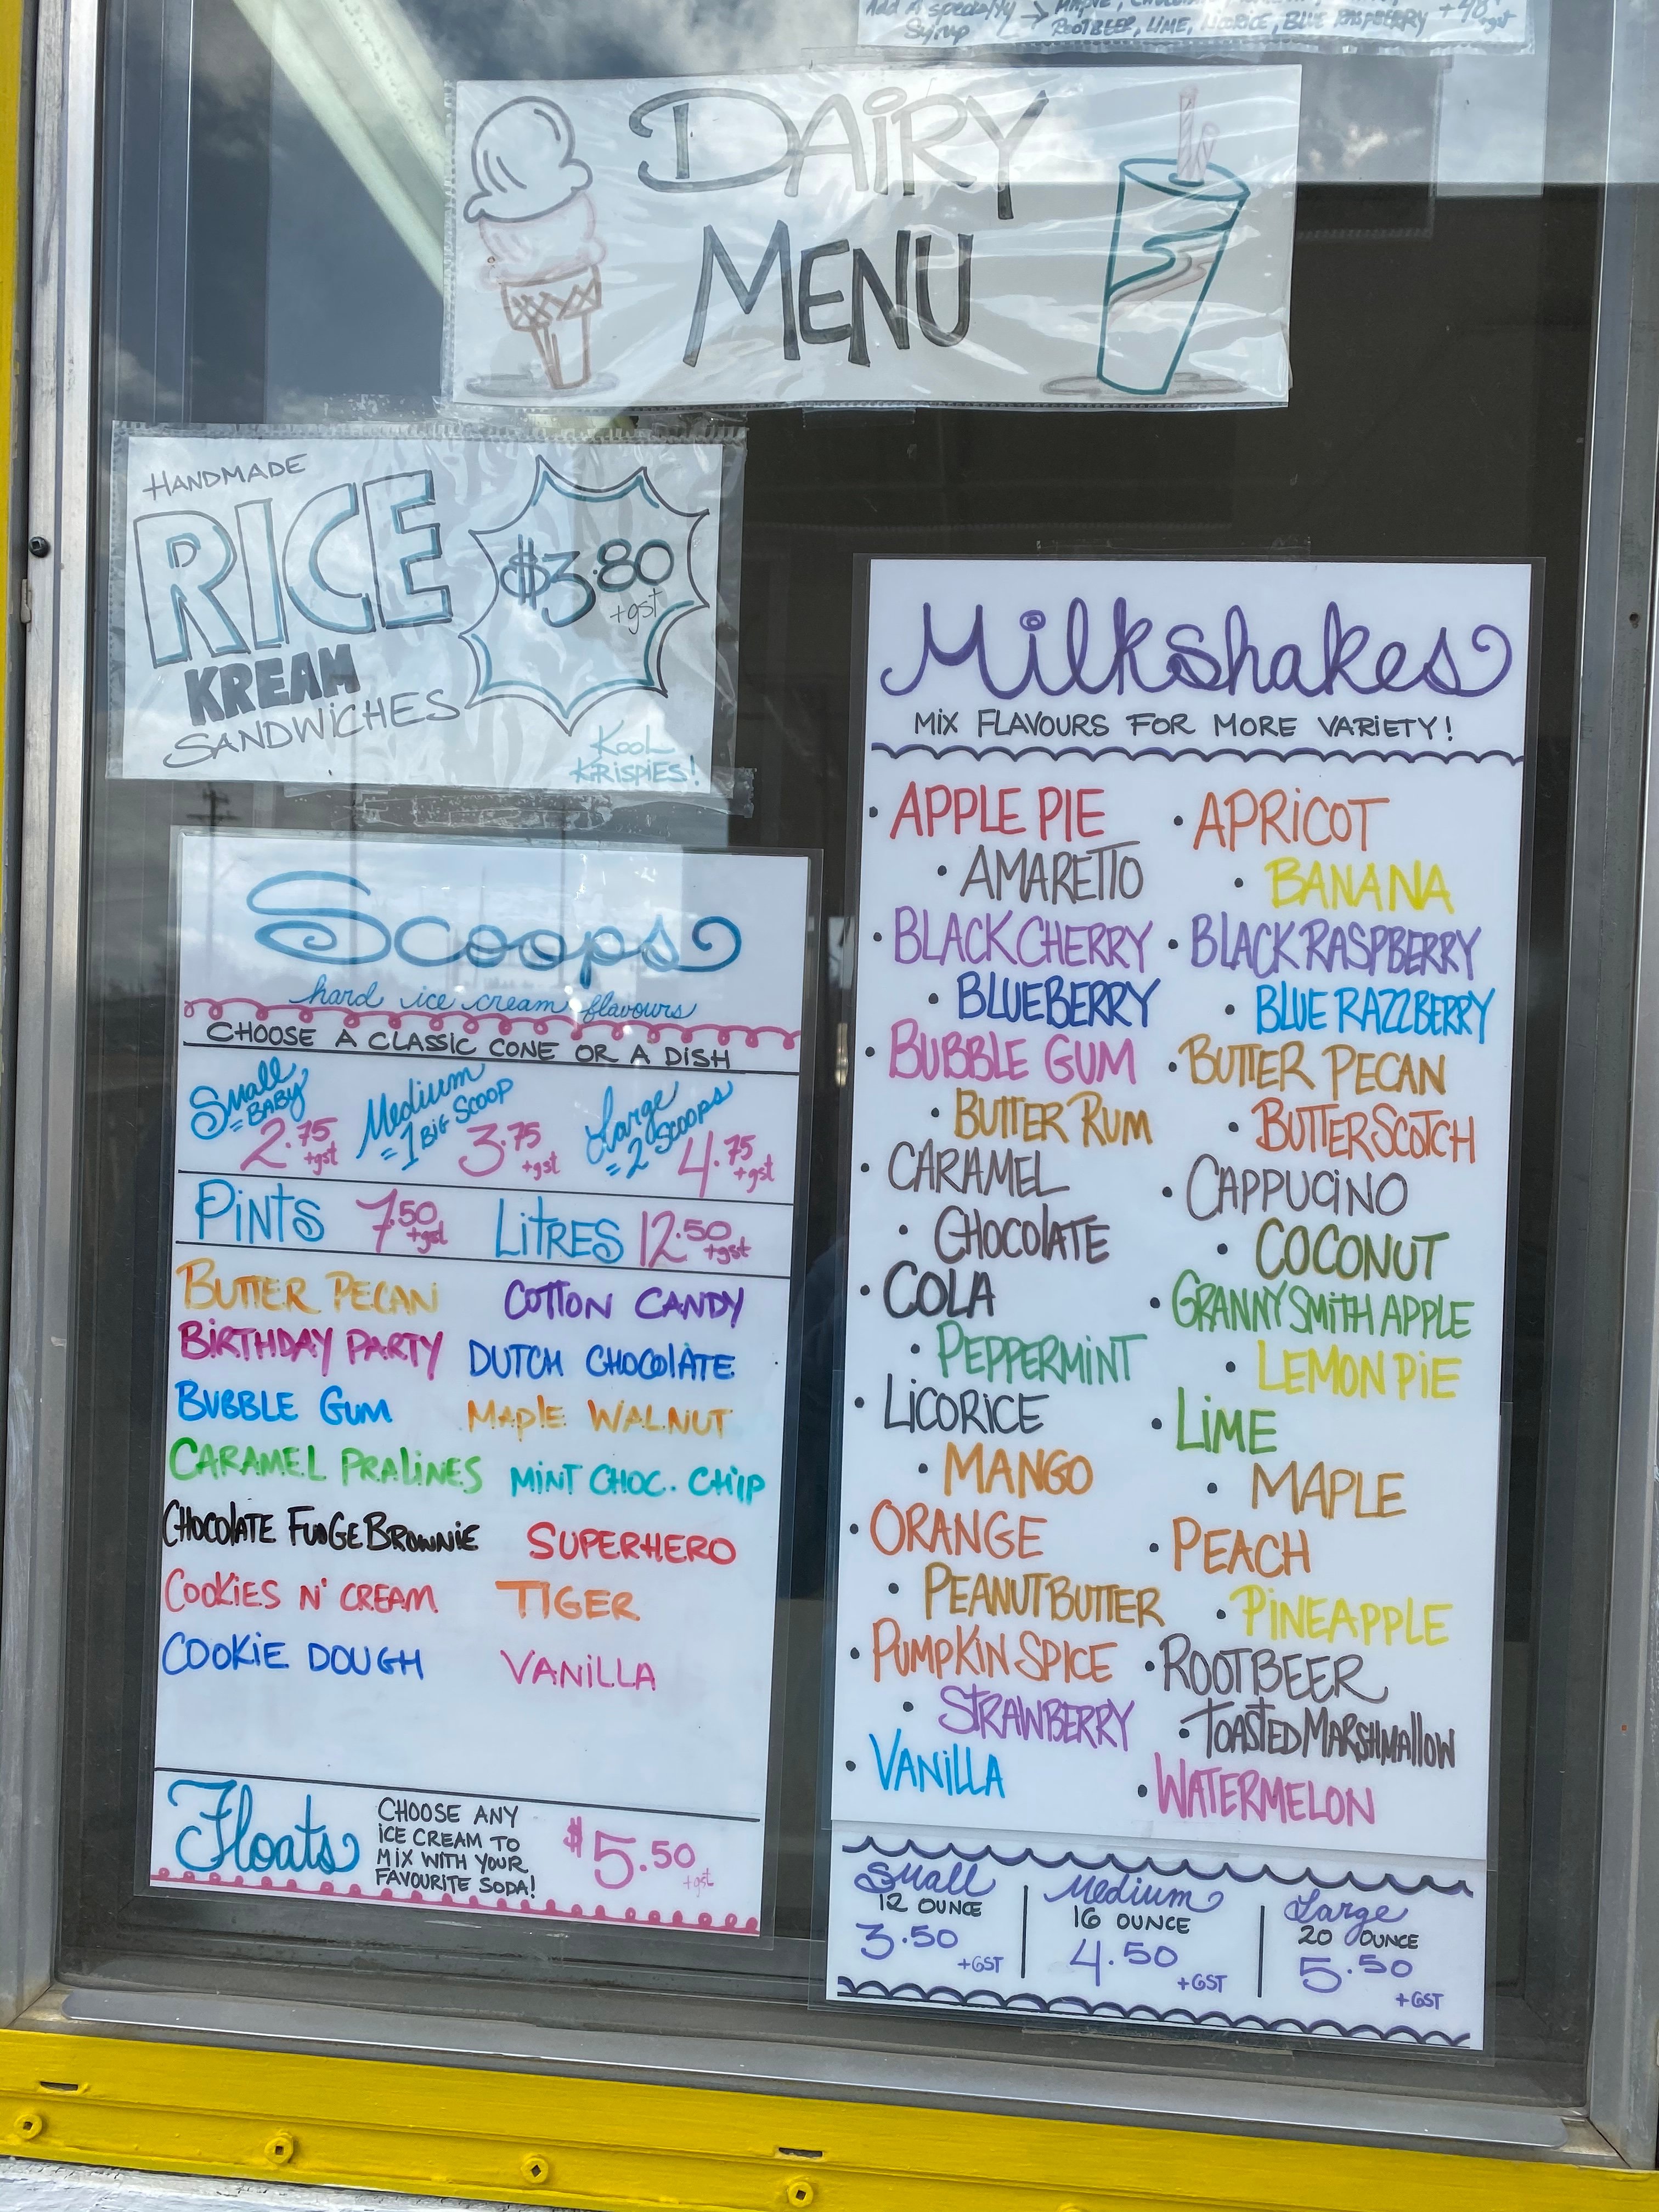 Add A specialty → MAPLE, CHOCOLATE,
Syrup ROOTBEER, LIME, LICORICE, BLUE RASPBERRY +48¢ +gst
DAiRY
MENU
HANDMADE
RICE
KREAM
SANDWiCHES
$3.80
+gst
KOOL
KRiSPiES!
Scoops
hard ice cream flavours
CHOOSE A CLASSIC CONE OR A DISH
Small
=BABY
2.75
+gst
Medium
=1 BIG SCOOP
3.75
+gst
Large
=2 SCOOPS
4.75
+gst
PiNTS 7.50 +gst LiTRES 12.50 +gst
BUTTER PECAN COTTON CANDY
BiRTHDAY PARTY DUTCH CHOCOlATE
BUBBLE GUM MAPlE WALNUT
CARAMEL PRALiNES MiNT CHOC. CHiP
CHOCOlATE FUDGE BROWNiE SUPERHERO
COOKiES N' CREAM TIGER
COOKiE DOUGH VANiLLA
Floats
CHOOSE ANY
iCE CREAM TO
MiX WiTH YOUR
FAVOURITE SODA!
$5.50
+gst
Milkshakes
MiX FLAVOURS FOR MORE VARiETY!
• APPLE PIE • APRiCOT
• AMARETTO • BANANA
• BLACK CHERRY • BLACK RASPBERRY
• BLUEBERRY • BLUE RAZZBERRY
• BUBBLE GUM • BUTTER PECAN
• BUTTER RUM • BUTTERSCOTCH
• CARAMEL • CAPPUCiNO
• CHOCOlATE • COCONUT
• COLA • GRANNY SMiTH APPLE
• PEPPERMiNT • LEMON PiE
• LiCORiCE • LiME
• MANGO • MAPLE
• ORANGE • PEACH
• PEANUT BUTTER • PiNEAPPLE
• PUMPKiN SPICE • ROOTBEER
• STRAWBERRY • TOASTED MARSHMAllOW
• VANiLLA • WATERMELON
Small
12 OUNCE
3.50
+GST
Medium
16 OUNCE
4.50
+GST
Large
20 OUNCE
5.50
+GST